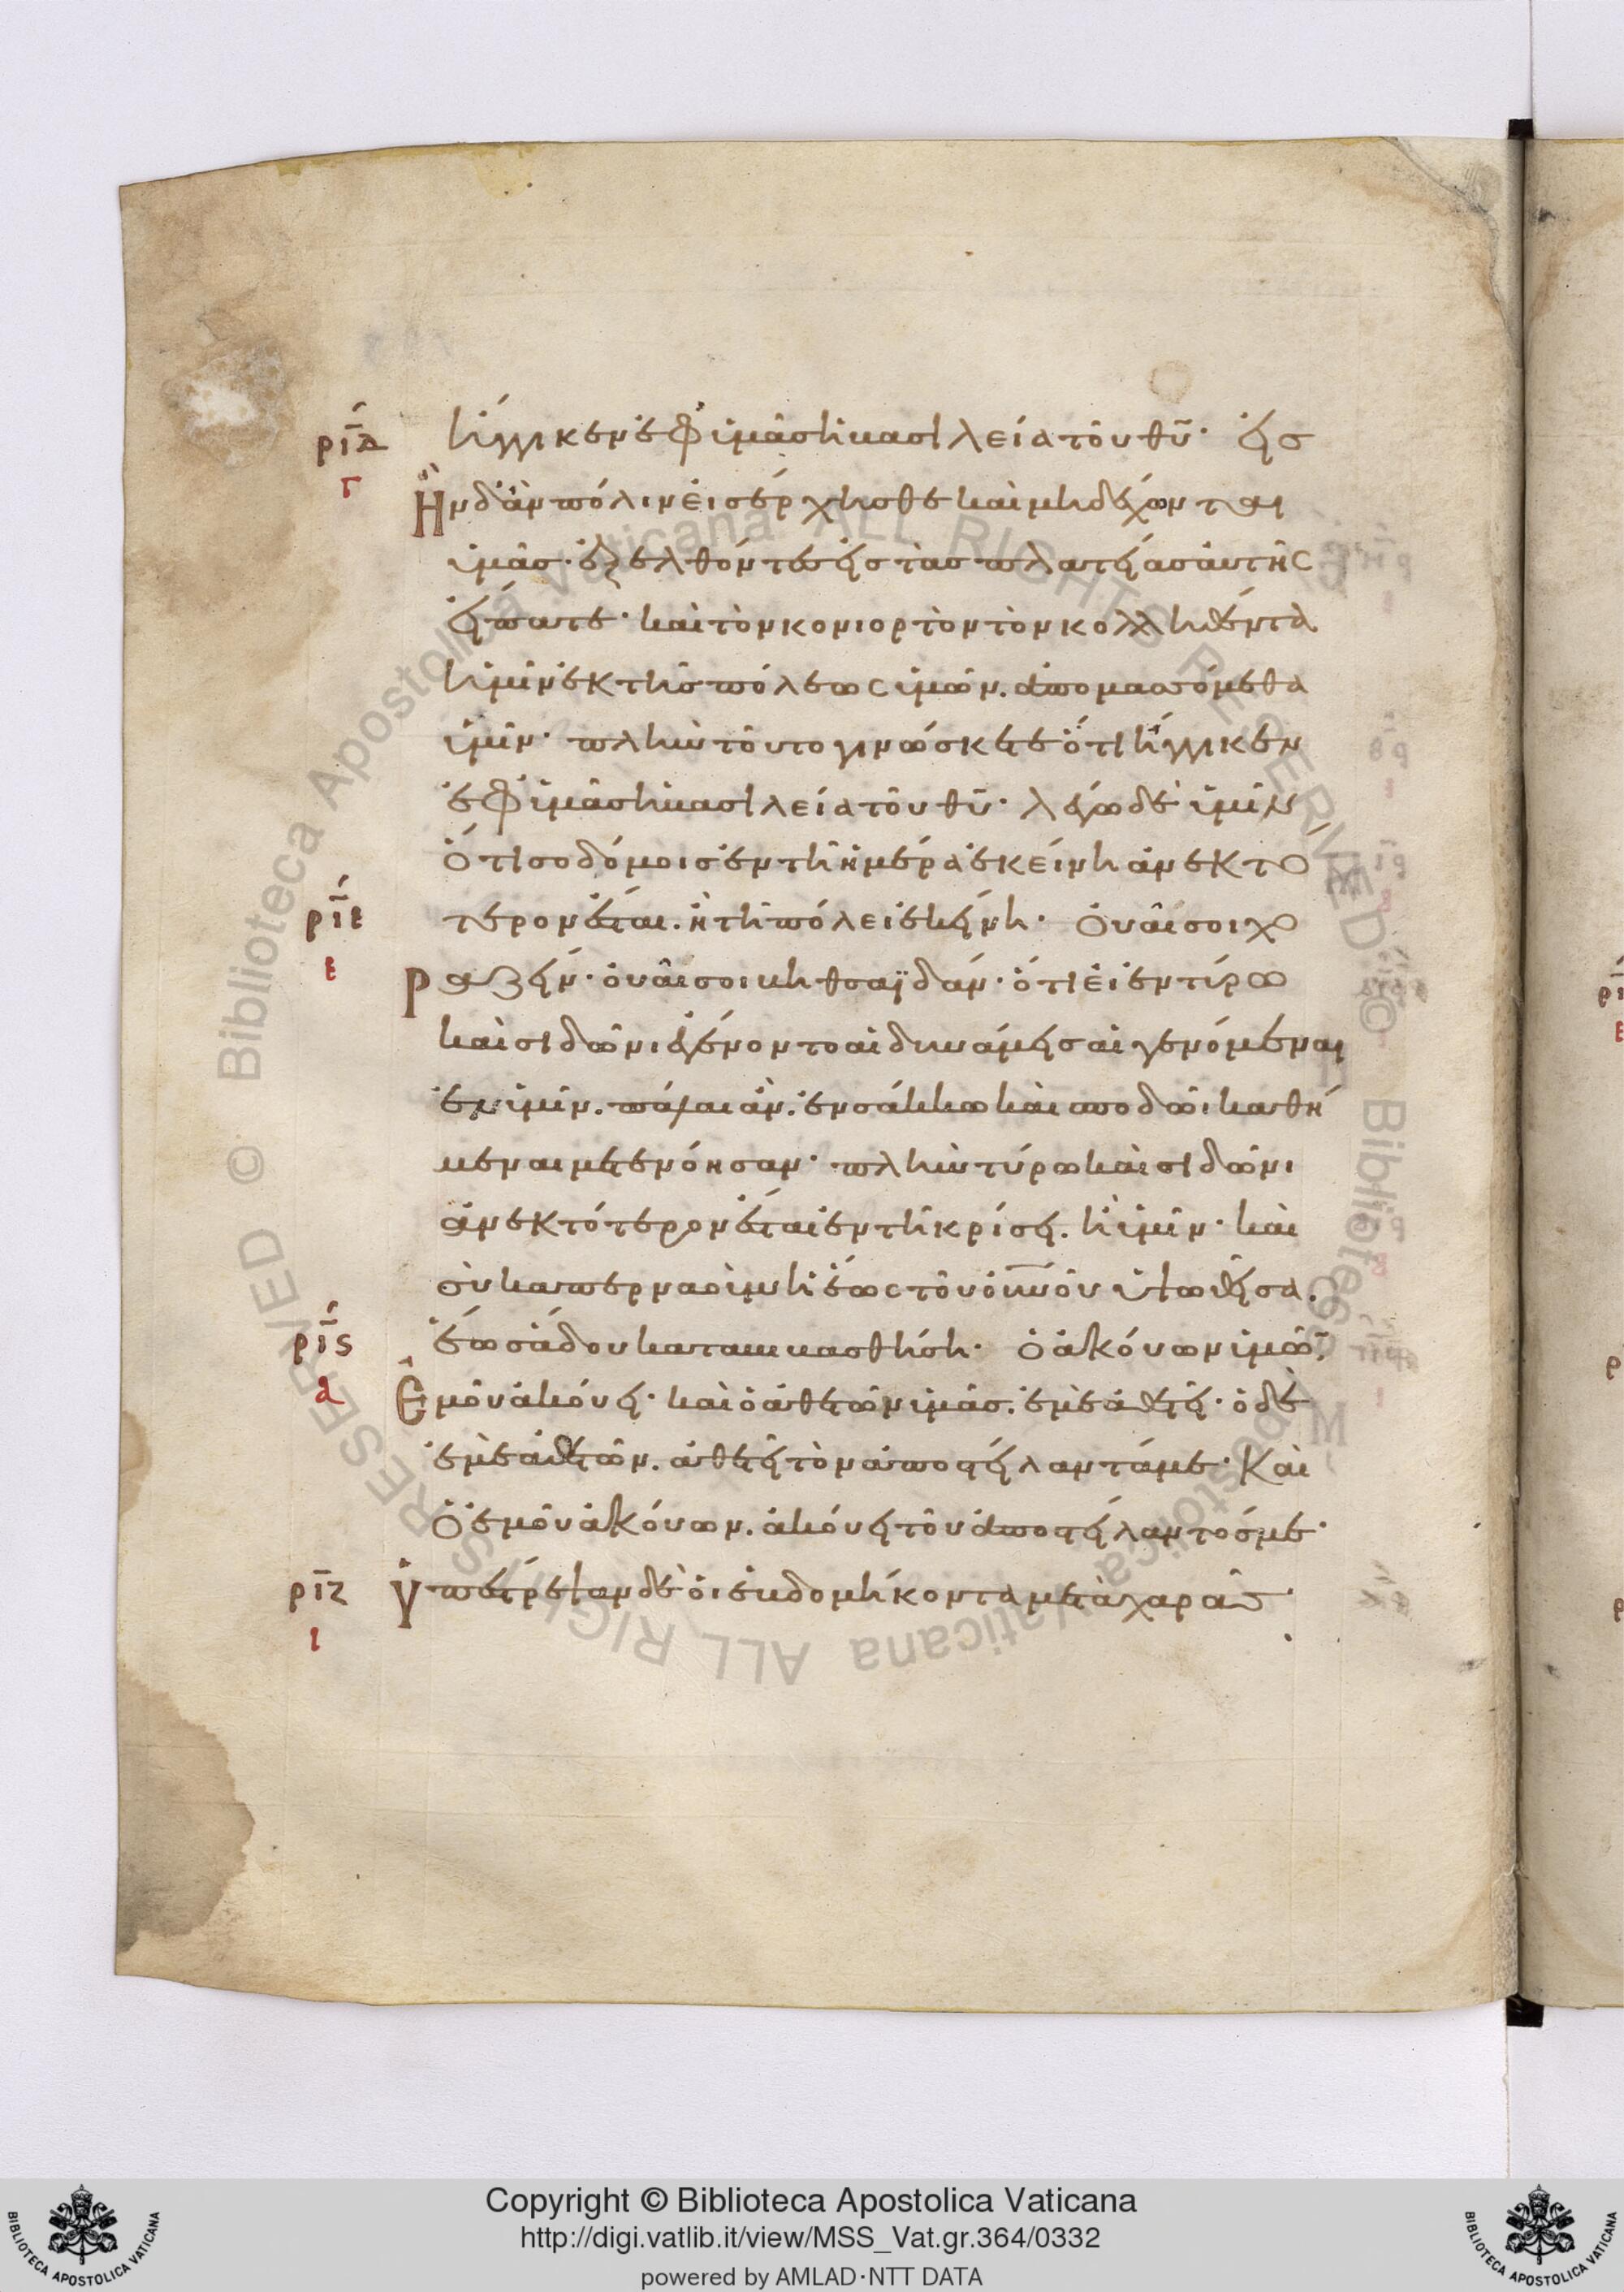 ἤγγικεν ἐφ' ὑμᾶς ἡ βασιλεία τοῦ θῦ· εἰς
ριδ
γ
Ἣν δ' ἂν πόλιν εἰσέρχησθε καὶ μὴ δέχωνται
ὑμᾶς· ἐξελθόντες εἰς τὰς πλατείας αὐτῆς
εἴπατε· καὶ τὸν κονιορτὸν τὸν κολληθέντα
ἡμῖν ἐκ τῆς πόλεως ὑμῶν. ἀπομασσόμεθα
ὑμῖν· πλὴν τοῦτο γινώσκετε ὅτι ἤγγικεν
ἐφ' ὑμᾶς ἡ βασιλεία τοῦ θῦ· λέγω δὲ ὑμῖν
ὅτι σοδόμοις ἐν τῇ ἡμέρα ἐκείνη ἀνεκτό
τερον ἔσται. ἢ τῇ πόλει ἐκείνη· Οὐαί σοι χο
ριε
ε
ραζείν· οὐαί σοι βηθσαϊδάν· ὅτι εἰ ἐν τύρω
καὶ σιδῶνι ἐγένοντο αἱ δυνάμεις αἱ γενόμεναι
ἐν ὑμῖν. πάλαι ἂν. ἐν σάκκω καὶ σποδῶι καθή
μεναι μετενόησαν· πλὴν τύρω καὶ σιδῶνι
ἀνεκτότερον ἔσται ἐν τῇ κρίσει. ἢ ὑμῖν· καὶ
σὺ καπερναοὺμ ἡ ἕως τοῦ οὐνοῦ ὑψωθεῖσα.
ἕως ἅδου καταβιβασθήση· Ὁ ἀκούων ὑμῶ̅.
ριϛ
α
Ἐμοῦ ἀκούει· καὶ ὁ ἀθετῶν ὑμᾶς. ἐμὲ ἀθετεῖ· ὁ δὲ
ἐμὲ ἀθετῶν. ἀθετεῖ τὸν ἀποστείλαντά με· Καὶ
ὁ ἐμοῦ ἀκούων. ἀκούει τοῦ ἀποστείλαντός με·
ριζ
ι
Ὑπέστρεψαν δὲ οἱ ἑβδομήκοντα μετὰ χαρᾶς·
Copyright © Biblioteca Apostolica Vaticana
http://digi.vatlib.it/view/MSS_Vat.gr.364/0332
powered by AMLAD·NTT DATA
BIBLIOTECA APOSTOLICA VATICANA
BIBLIOTECA APOSTOLICA VATICANA
© Biblioteca Apostolica Vaticana ALL RIGHTS RESERVED
© Biblioteca Apostolica Vaticana ALL RIGHTS RESERVED